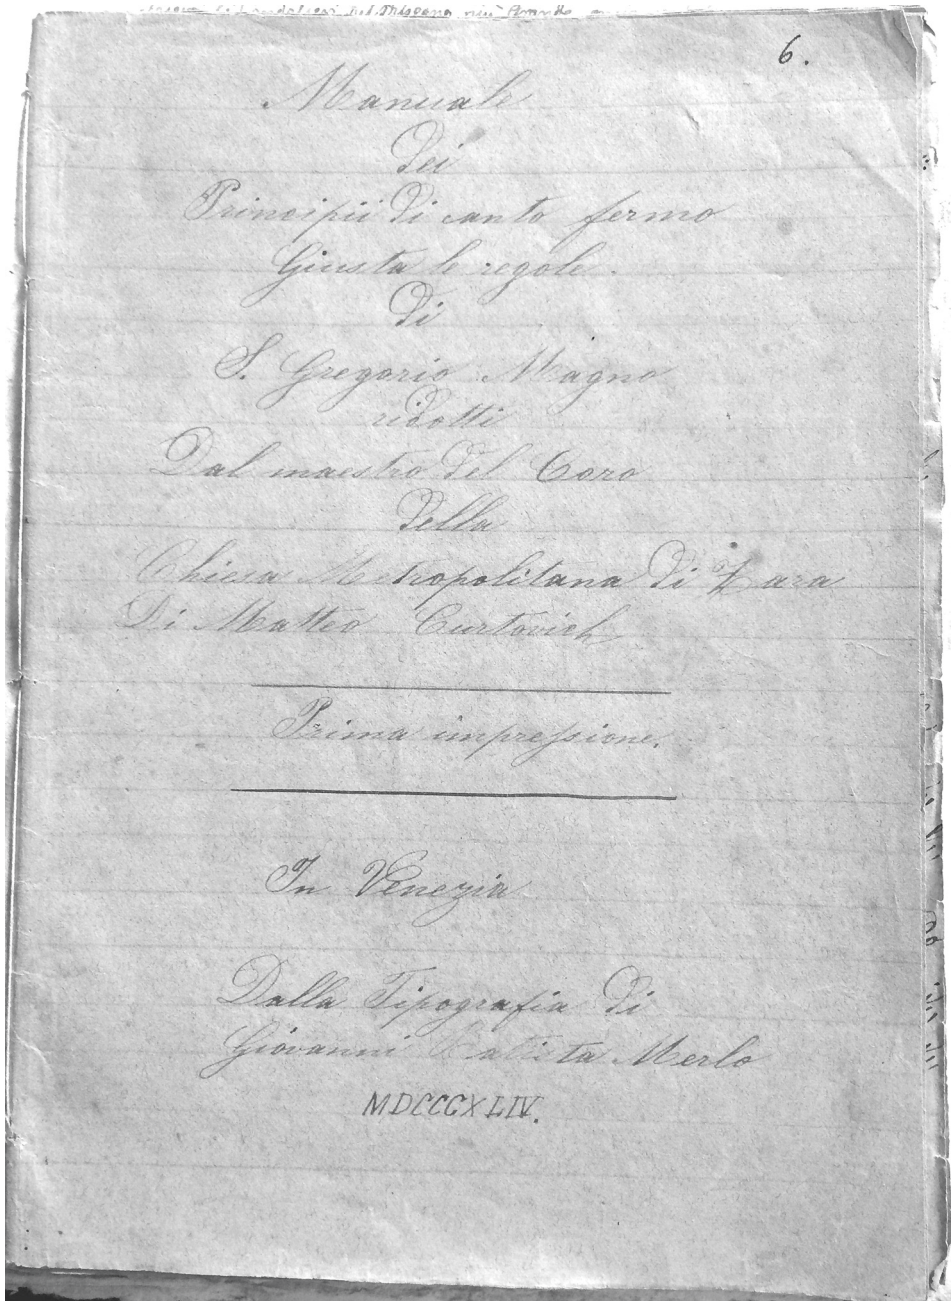 6.
Manuale
Dei
Principii di canto fermo
Giusta le regole
Di
S. Gregorio Magno
ridotti
Dal maestro del Coro
della
Chiesa Metropolitana di Zara
Di Matteo Curtovich
Prima impressione.
In Venezia
Dalla Tipografia di
Giovanni Batista Merlo
MDCCCXLIV.